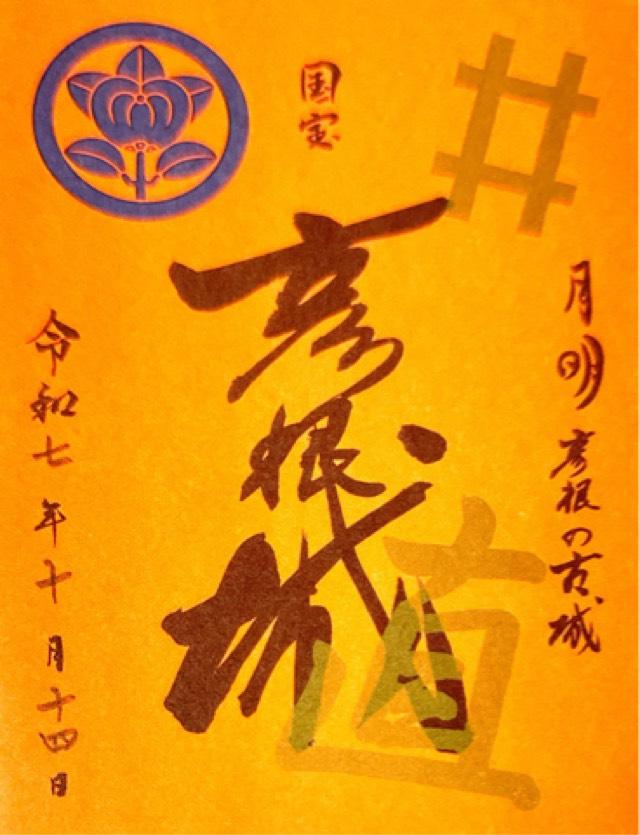 国宝
月明彦根の古城
彦根城
直
令和七年十月十四日